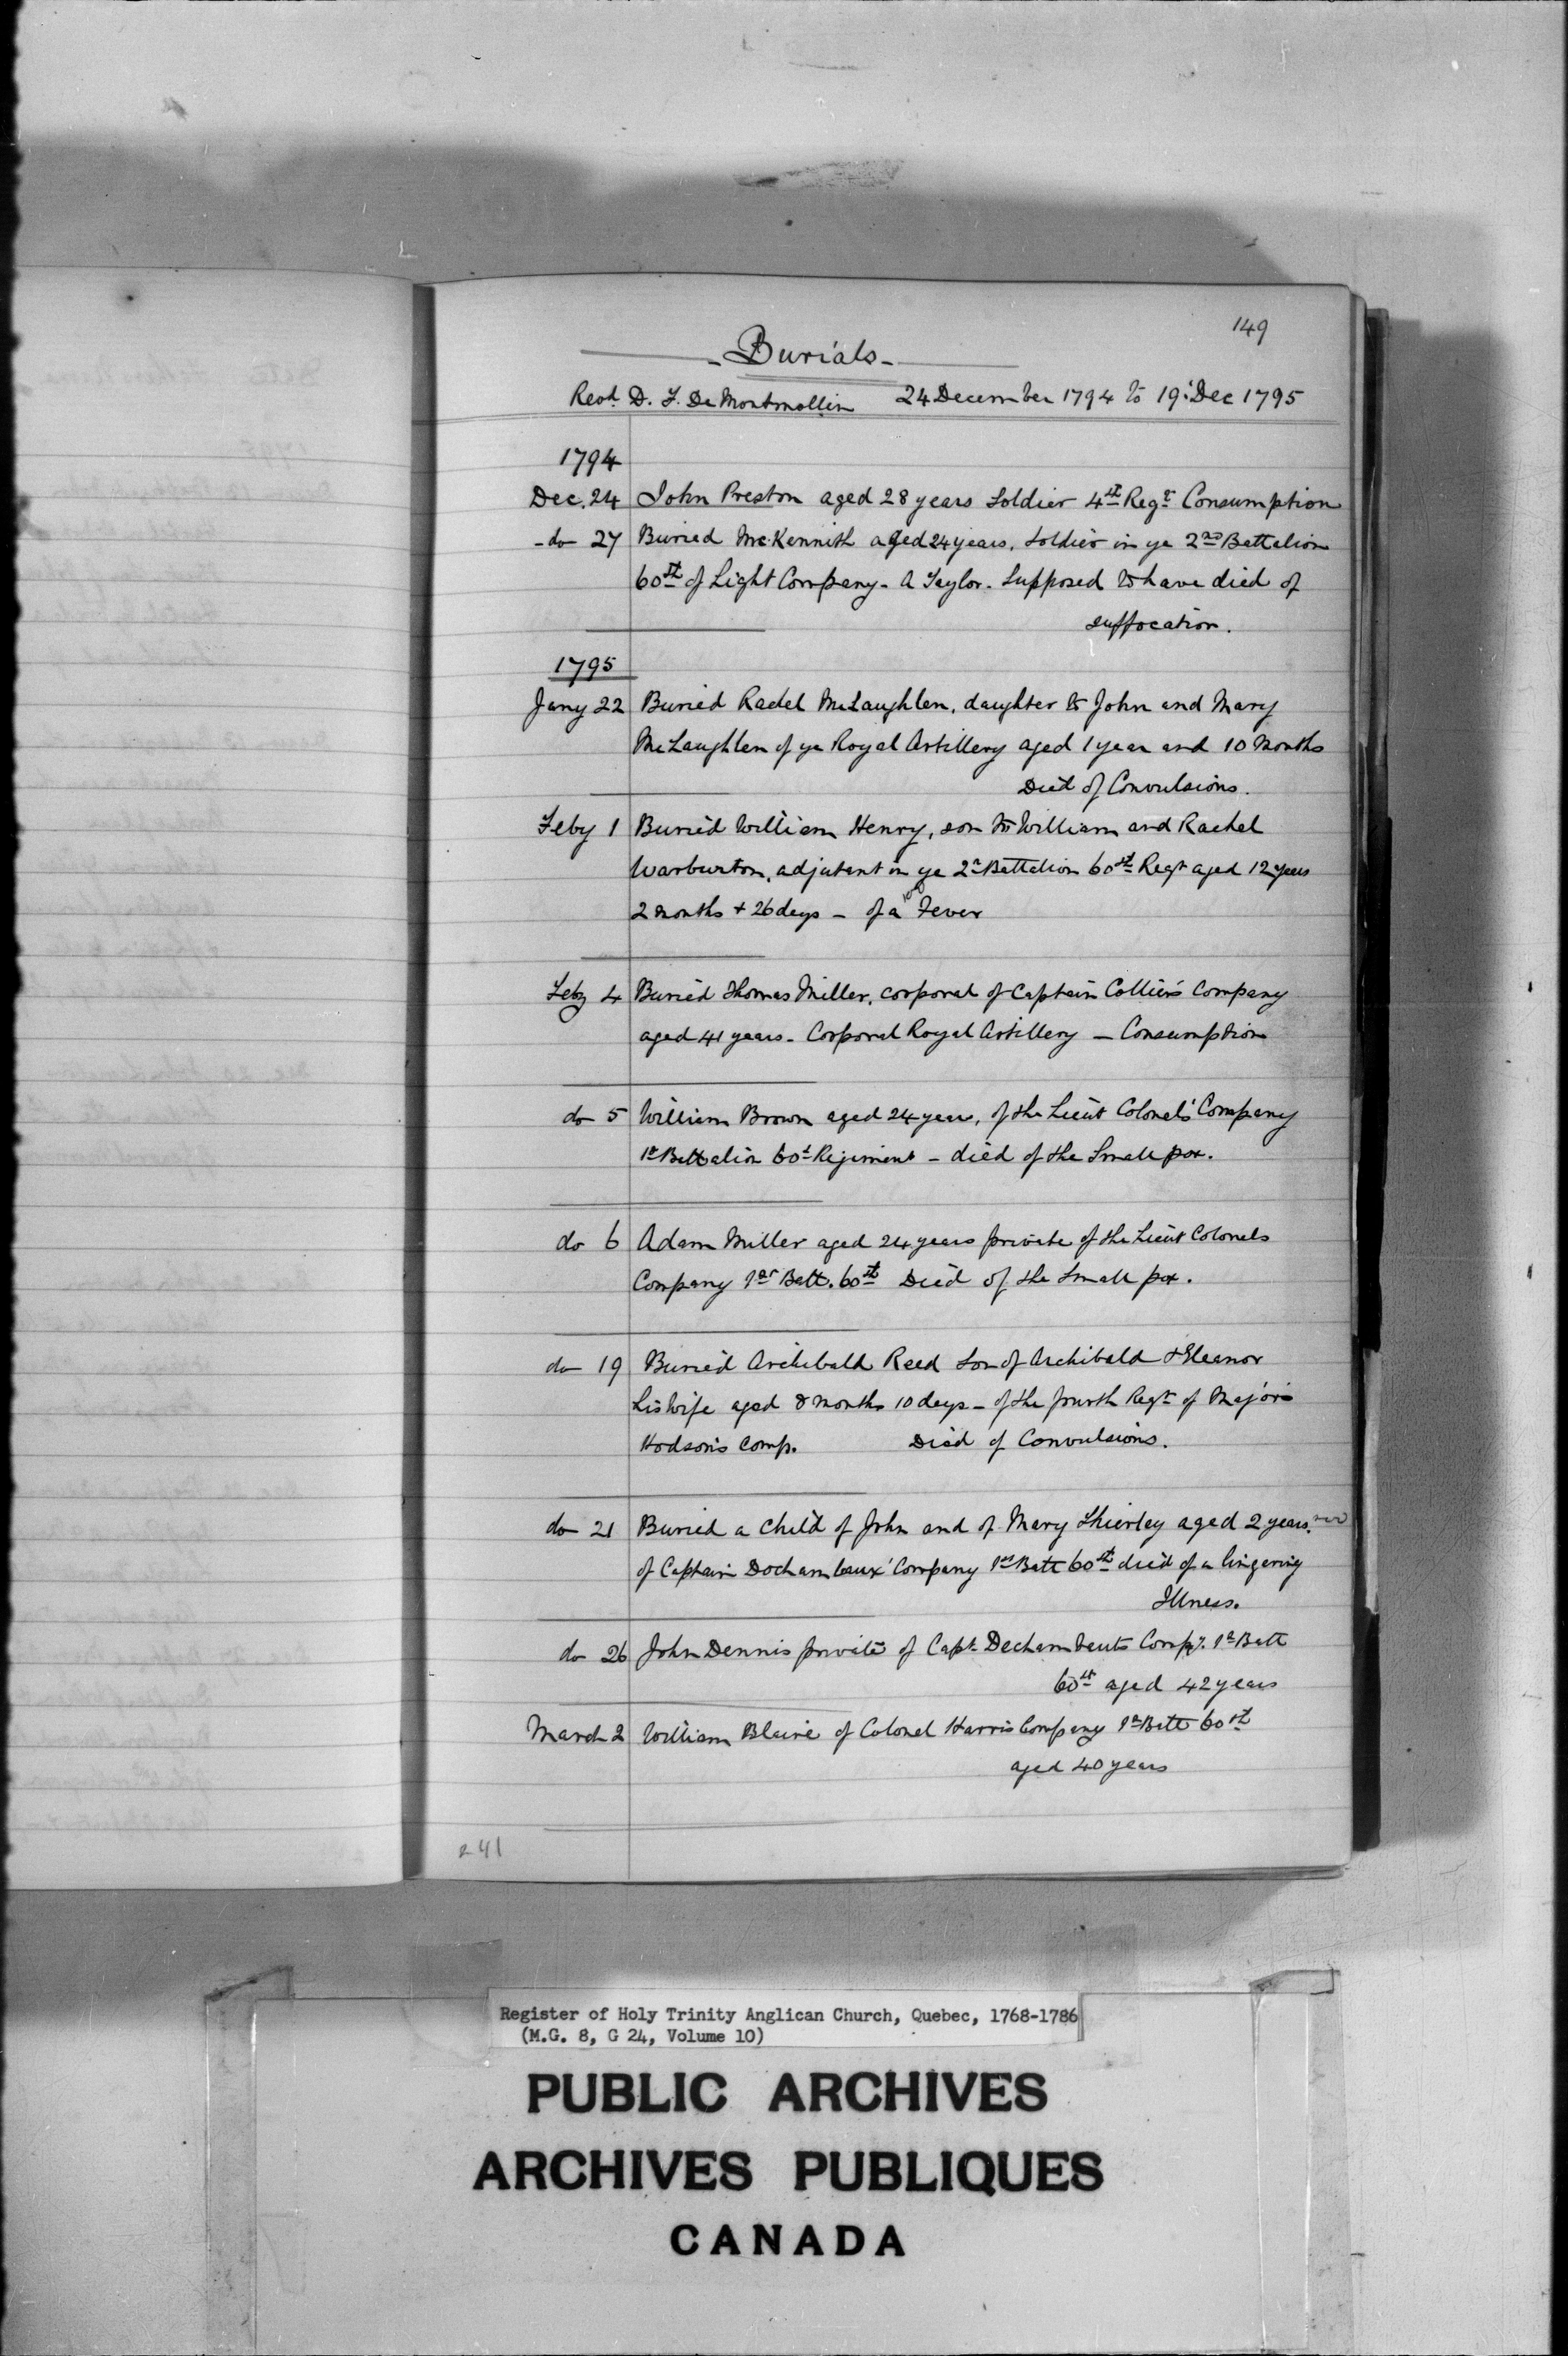 149
- Burials -
Revd. D. F. De Montmollin 24 December 1794 to 19 Dec 1795
1794
Dec. 24 John Preston aged 28 years Soldier 4th Regt. Consumption
- do 27 Buried McKennith aged 24 years, Soldier in ye 2nd Battalion
60th of Light Company - A Taylor. Supposed to have died of
suffocation.
1795
Jany 22 Buried Rachel McLaughlen, daughter to John and Mary
McLaughlen of ye Royal Artillery aged 1 year and 10 Months
Died of Convulsions.
Feby 1 Buried William Henry, son to William and Rachel
Warburton, adjutant in ye 2d Battalion 60th Regt aged 12 years
2 months + 26 days - of a Fever
Feby 4 Buried Thomas Miller, corporal of Captain Collier's Company
aged 41 years - Corporal Royal Artillery - Consumption
do 5 William Brown aged 24 year, of the Lieut Colonels' Company
1st Battalion 60th Regiment - died of the Small pox.
do 6 Adam Miller aged 24 years private of the Lieut Colonels
Company 1st Batt. 60th Died of the Small pox.
do 19 Buried Archibald Reed Son of Archibald & Eleanor
his Wife aged 8 months 10 days - of the fourth Regt of Major's
Hodson's Comp. Died of Convulsions.
do 21 Buried a Child of John and of Mary Shierley aged 2 years.
of Captain Dochambaux' Company 1st Batt 60th died of a lingering
Illness.
do 26 John Dennis private of Capt. Dechambauts Compy. 1st Batt
60th aged 42 years
March 2 William Blaire of Colonel Harris Company 1st Batt 60th
aged 40 years
241
Register of Holy Trinity Anglican Church, Quebec, 1768-1786
(M.G. 8, G 24, Volume 10)
PUBLIC ARCHIVES
ARCHIVES PUBLIQUES
CANADA